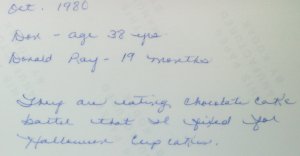 Oct. 1980
Don - age 38 yrs
Donald Ray - 19 months
They are eating chocolate cake
batter that I fixed for
Halloween cupcakes.